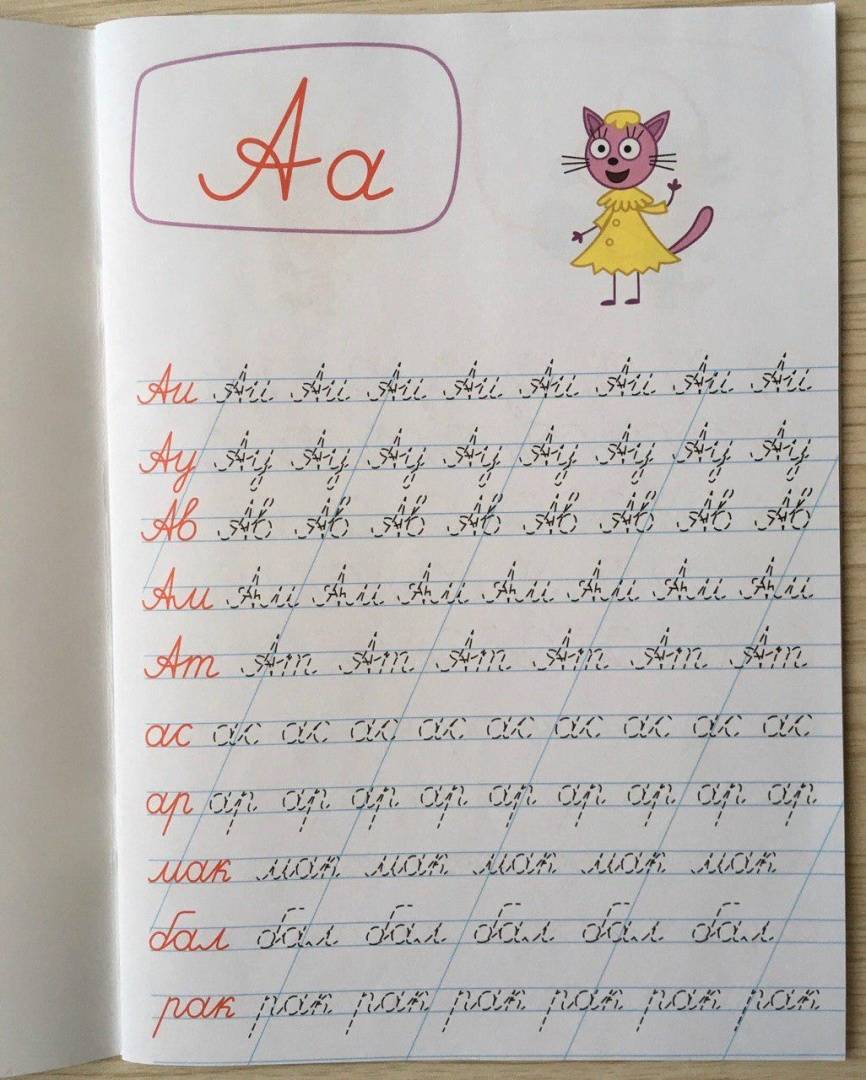 Аа
Аи Аи Аи Аи Аи Аи Аи Аи Аи
Ау Ау Ау Ау Ау Ау Ау Ау Ау
Ав Ав Ав Ав Ав Ав Ав Ав Ав
Ам Ам Ам Ам Ам Ам Ам Ам
Ат Ат Ат Ат Ат Ат Ат
ас ас ас ас ас ас ас ас ас ас
ар ар ар ар ар ар ар ар ар ар
мак мак мак мак мак мак
бал бал бал бал бал бал
рак рак рак рак рак рак рак